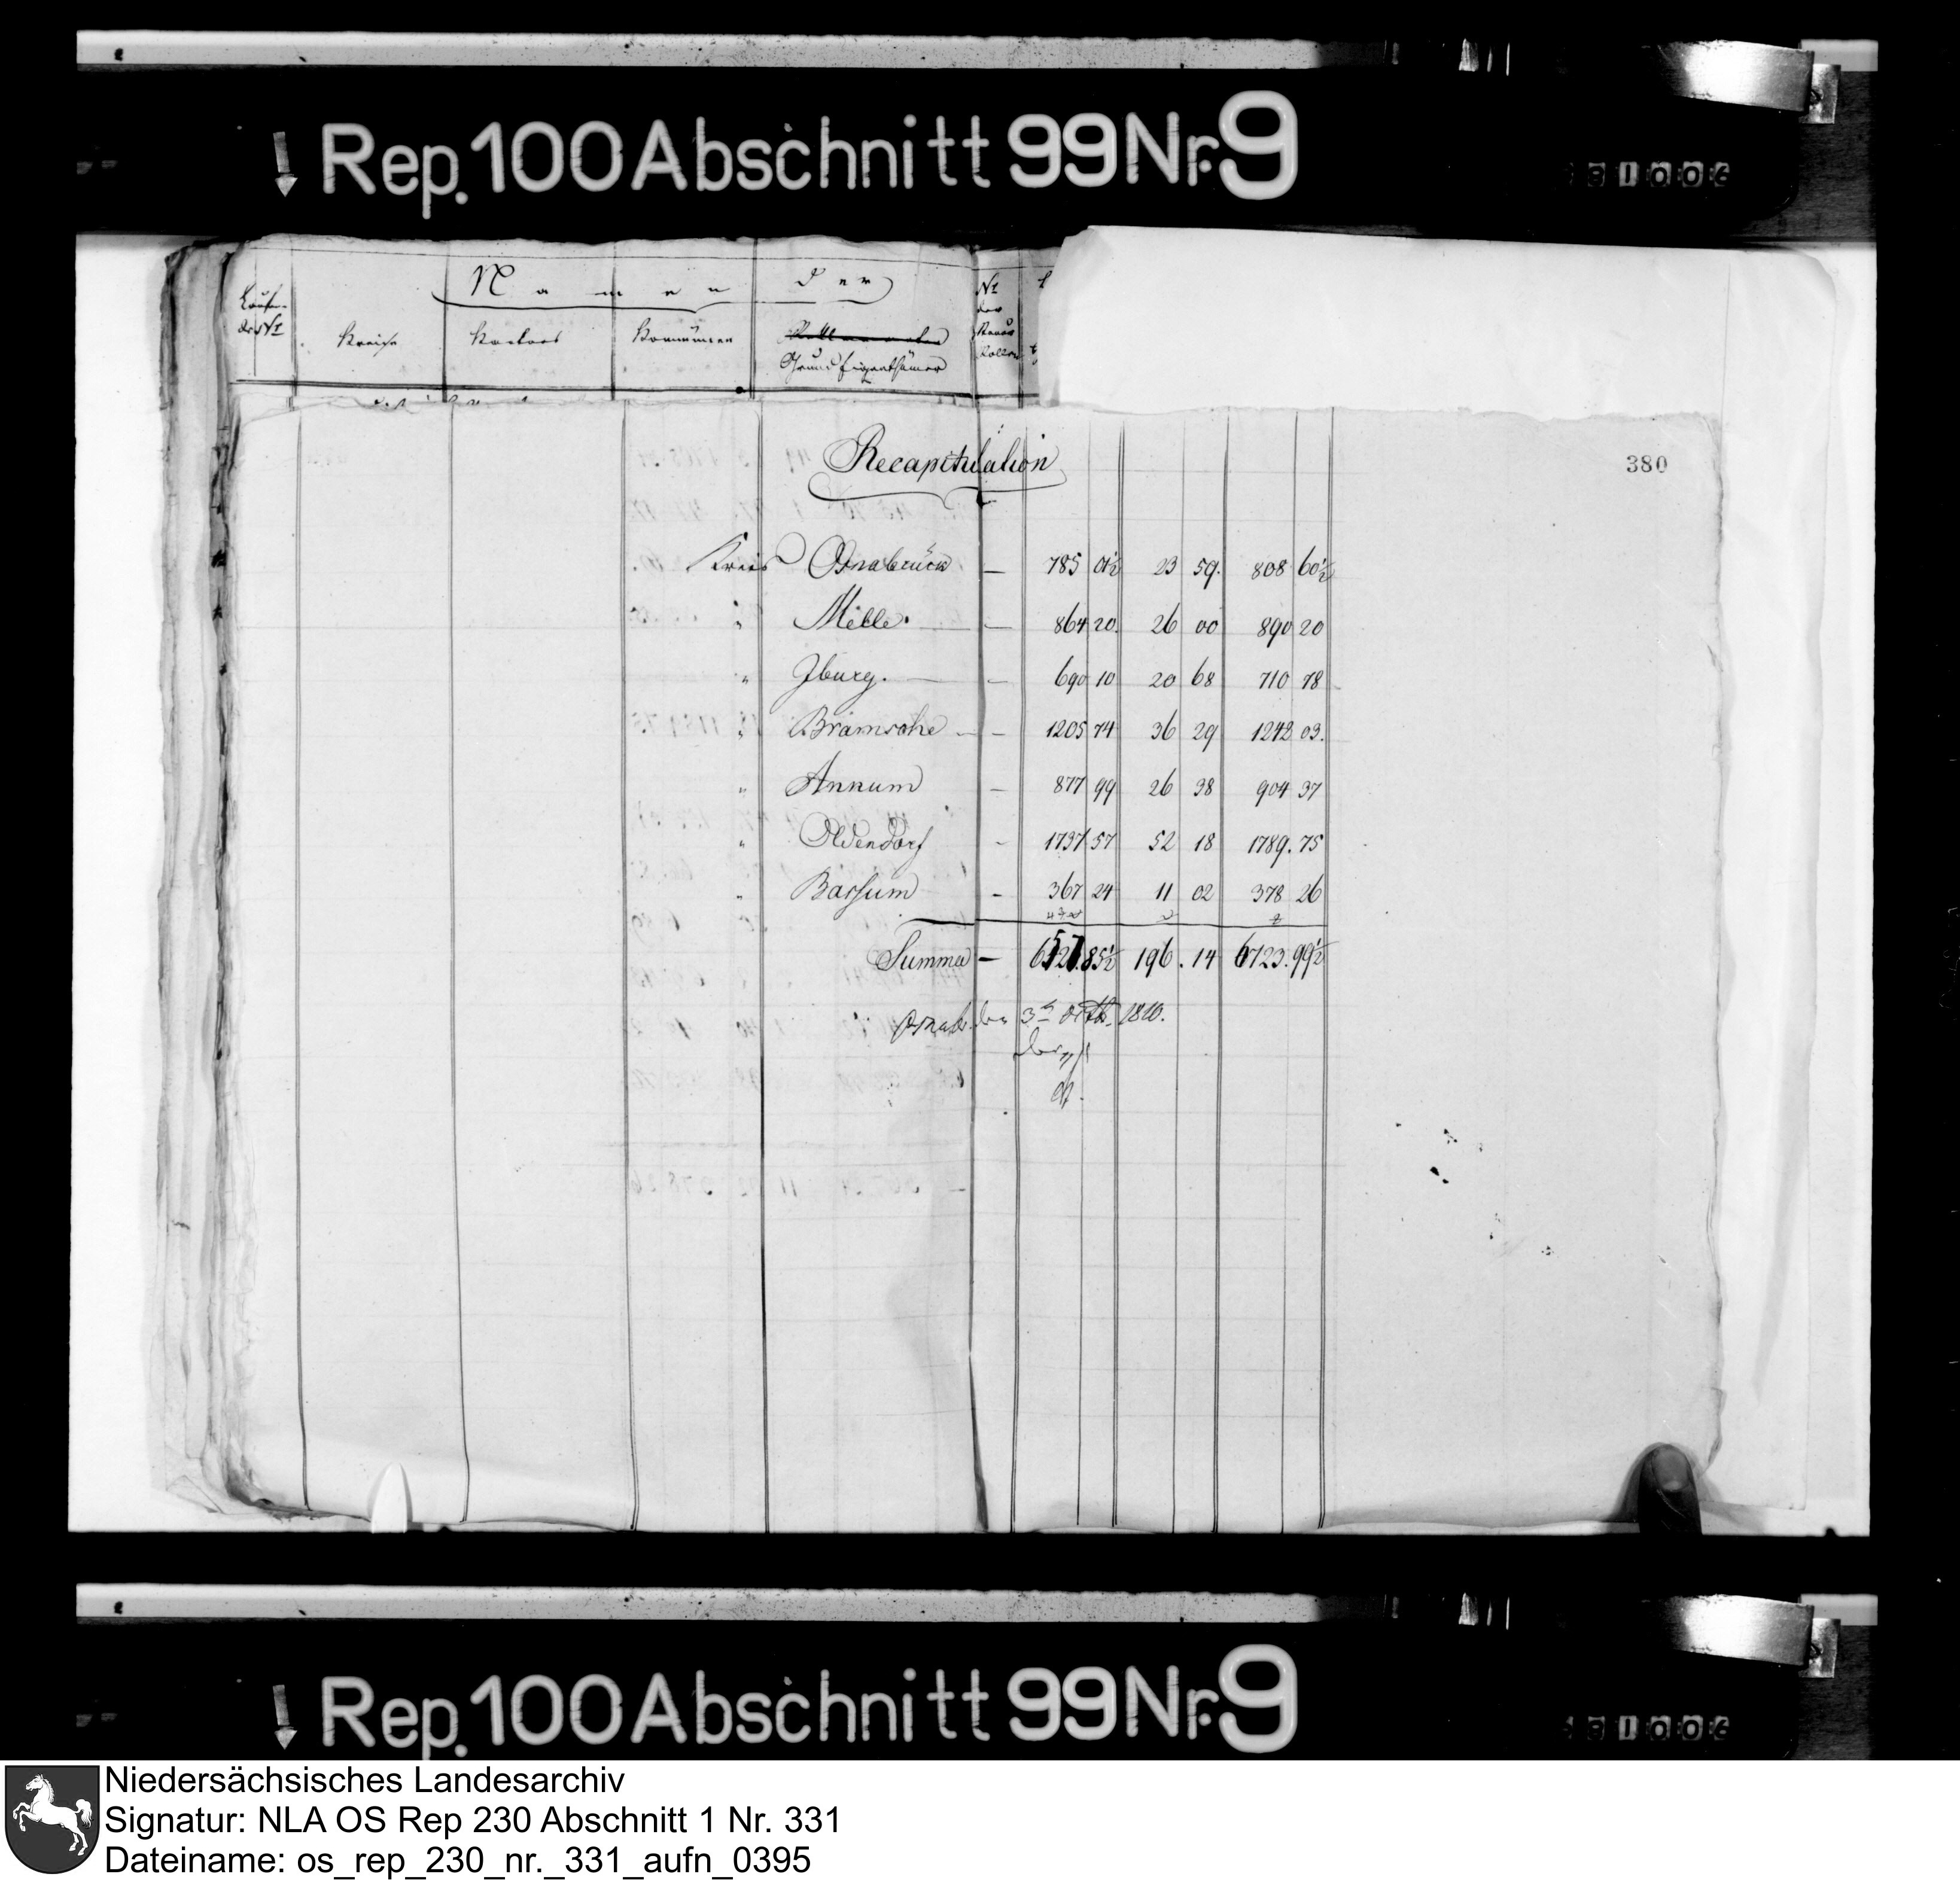 Rep. 100 Abschnitt 99 Nr. 9
81006
Laufen-
de Nº
Namen der
Kreise
Kantons
Kommünen
Grund Eigenthümer
Nº
der
Rollen
380
Recapitulation
Kreis Osnabrück — 785 01½ 23 59. 808 60½
" Melle. — 864 20. 26 00 890 20
" Iburg. — 690 10 20 68 710 78
" Bramsche — 1205 74 36 29 1242 03.
" Ankum — 877 99 26 38 904 37
" Oldendorf - 1737 57 52 18 1789. 75
" Barsum - 367 24 11 02 378 26
Summa — 6527. 85½ 196. 14 6723. 99½
Osnab. den 3ⁿ 1810.
Rep. 100 Abschnitt 99 Nr. 9
81006
Niedersächsisches Landesarchiv
Signatur: NLA OS Rep 230 Abschnitt 1 Nr. 331
Dateiname: os_rep_230_nr._331_aufn_0395